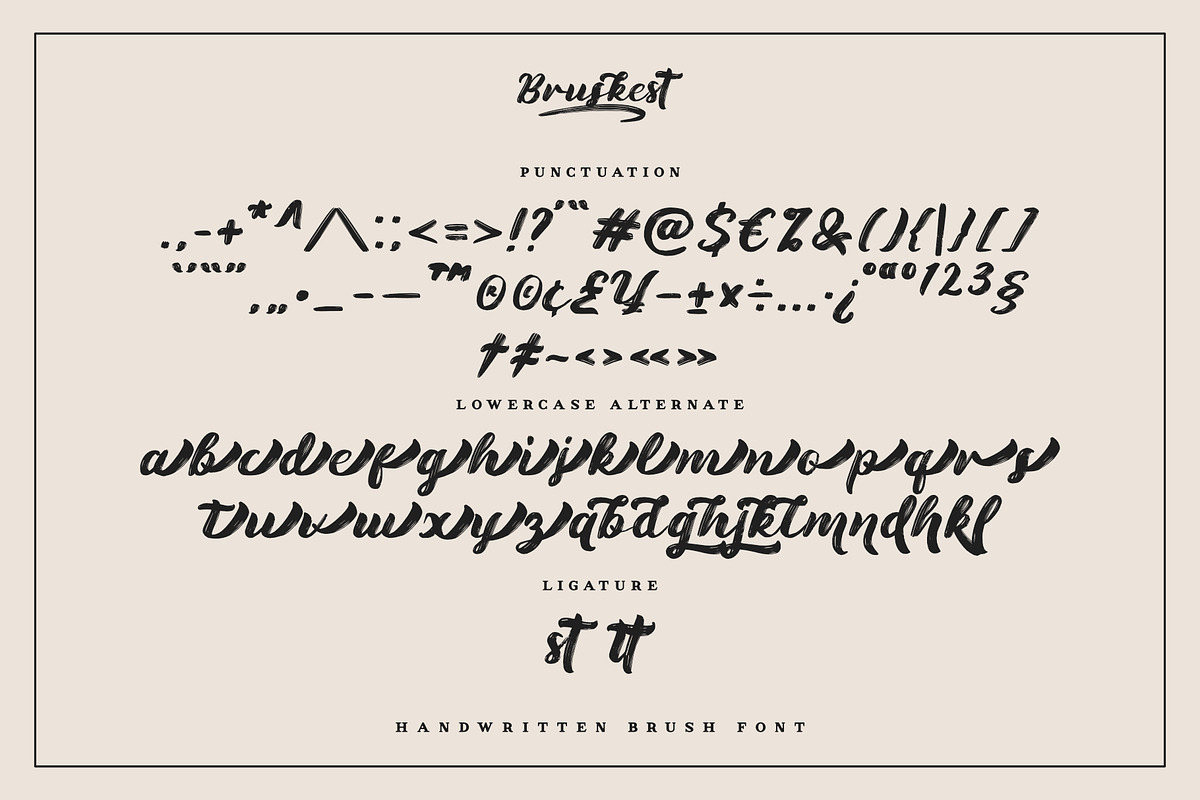 Bruskest
PUNCTUATION
.,-+*^/\:;<=>!?'"‘#@$€%&(){|}[]
‘’“”‚„•_-–—™®©¢£¥−±×÷…·¿ºªº¹²³§
†‡~‹›«»
LOWERCASE ALTERNATE
abcdefghijklmnopqrs
tuvwxyzabdghjklmndhkf
LIGATURE
st tt
HANDWRITTEN BRUSH FONT